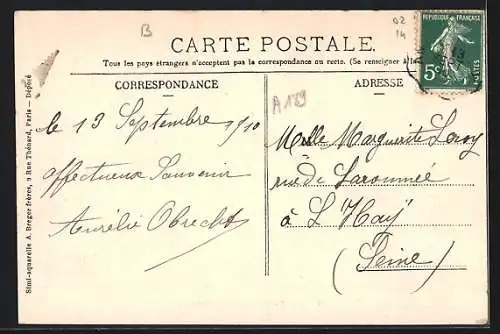 B
02
14
CARTE POSTALE.
Tous les pays étrangers n'acceptent pas la correspondance au recto. (Se renseigner à la
RÉPUBLIQUE FRANÇAISE
5c
POSTES
CORRESPONDANCE
ADRESSE
A 189
le 13 Septembre 1910
affectueux Souvenir
Aurélie Obrecht
Melle Marguerite Leroy
rue de
à L'Haÿ
(Seine)
Simi-aquarelle A. Breger frères, 9 Rue Thénard, Paris — Déposé